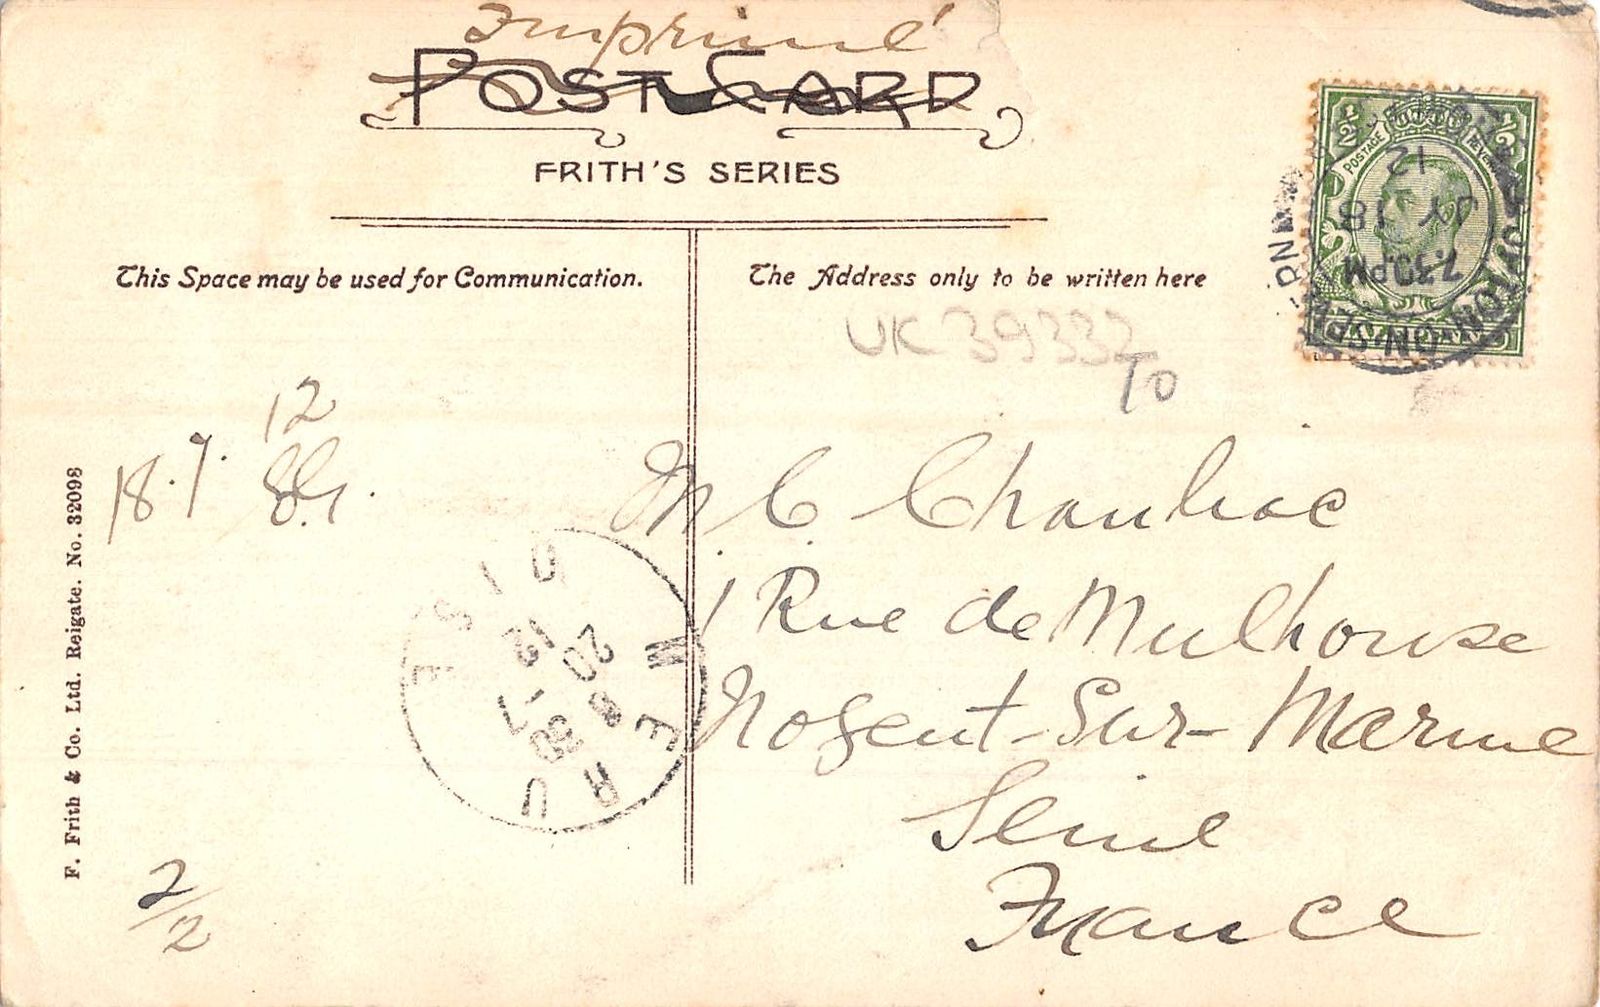 Imprimé
POST CARD
FRITH'S SERIES
This Space may be used for Communication.
The Address only to be written here
UK 39332
TO
POSTAGE
REVENUE
1/2
1/2
12
JY 18
7.30 PM
12
18.7.
M C Chauliac
1 Rue de Mulhouse
Nogent-Sur-Marne
Seine
France
SEINE
12
20
7
8
30
2/2
F. Frith & Co. Ltd. Reigate. No. 32098